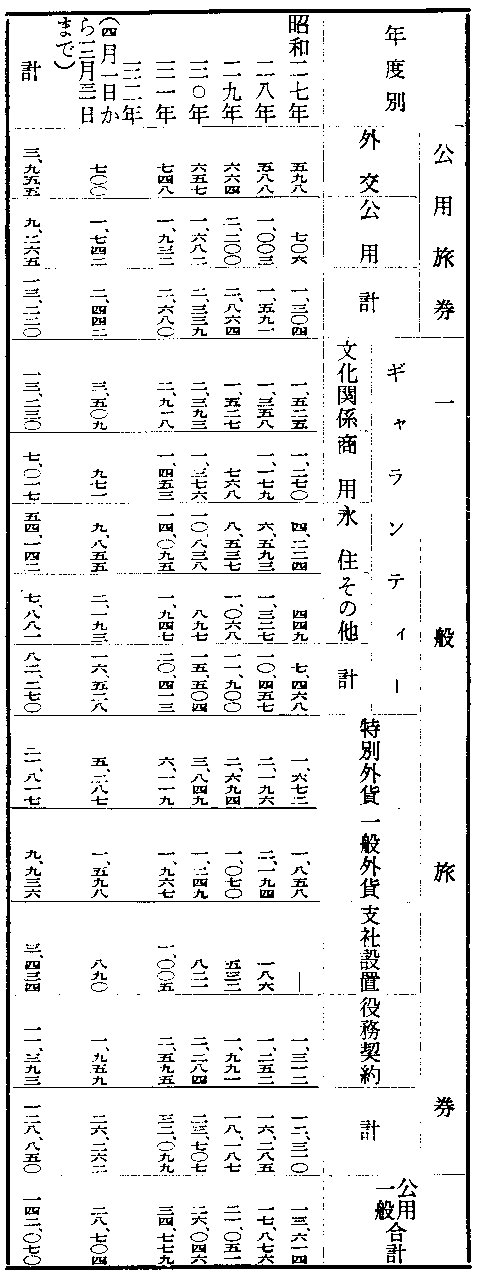 年度別 公用旅券 一般旅券
ギャランティー
外交 公用 計 文化関係 商用 永住 その他 計 特別外貨 一般外貨 支社設置 役務契約 計 公用一般合計
昭和二七年 五九八 七〇六 一、三〇四 一、五二五 一、二七〇 四、二二四 四四九 七、四六八 一、六七三 一、八五八 — 一、三一二 一二、三一〇 一三、六一四
二八年 五八八 一、〇〇三 一、五九一 一、三五八 一、一七九 六、五九三 一、三二七 一〇、四五七 二、一九六 二、一九四 一八六 一、二五二 一六、二八五 一七、八七六
二九年 六六四 二、二〇〇 二、八六四 一、五二七 七六八 八、五三七 一、〇六八 一一、九〇〇 二、六九四 一、〇七〇 五三二 一、九九一 一八、一八七 二一、〇五一
三〇年 六五七 一、六八二 二、三三九 二、三九三 一、三七六 一〇、八三八 八九七 一五、五〇四 三、八四九 一、二四九 八二一 二、二八四 二三、七〇七 二六、〇四六
三一年 七四八 一、九三二 二、六八〇 二、九一八 一、四五三 一四、〇九五 一、九四七 二〇、四一三 六、一一九 一、九六七 一、〇〇五 二、五九五 三二、〇九九 三四、七七九
三二年
(四月一日か
ら三月三一日
まで) 七〇〇 一、七四二 二、四四二 三、五〇九 九七一 九、八五五 二、一九三 一六、五二八 五、二八七 一、五九八 八九〇 一、九五九 二六、二六二 二八、七〇四
計 三、九五五 九、二六五 一三、二二〇 一三、二三〇 七、〇一七 五四、一四二 七、八八一 八二、二七〇 二一、八一七 九、九三六 三、四三四 一一、三九三 一二八、八五〇 一四二、〇七〇